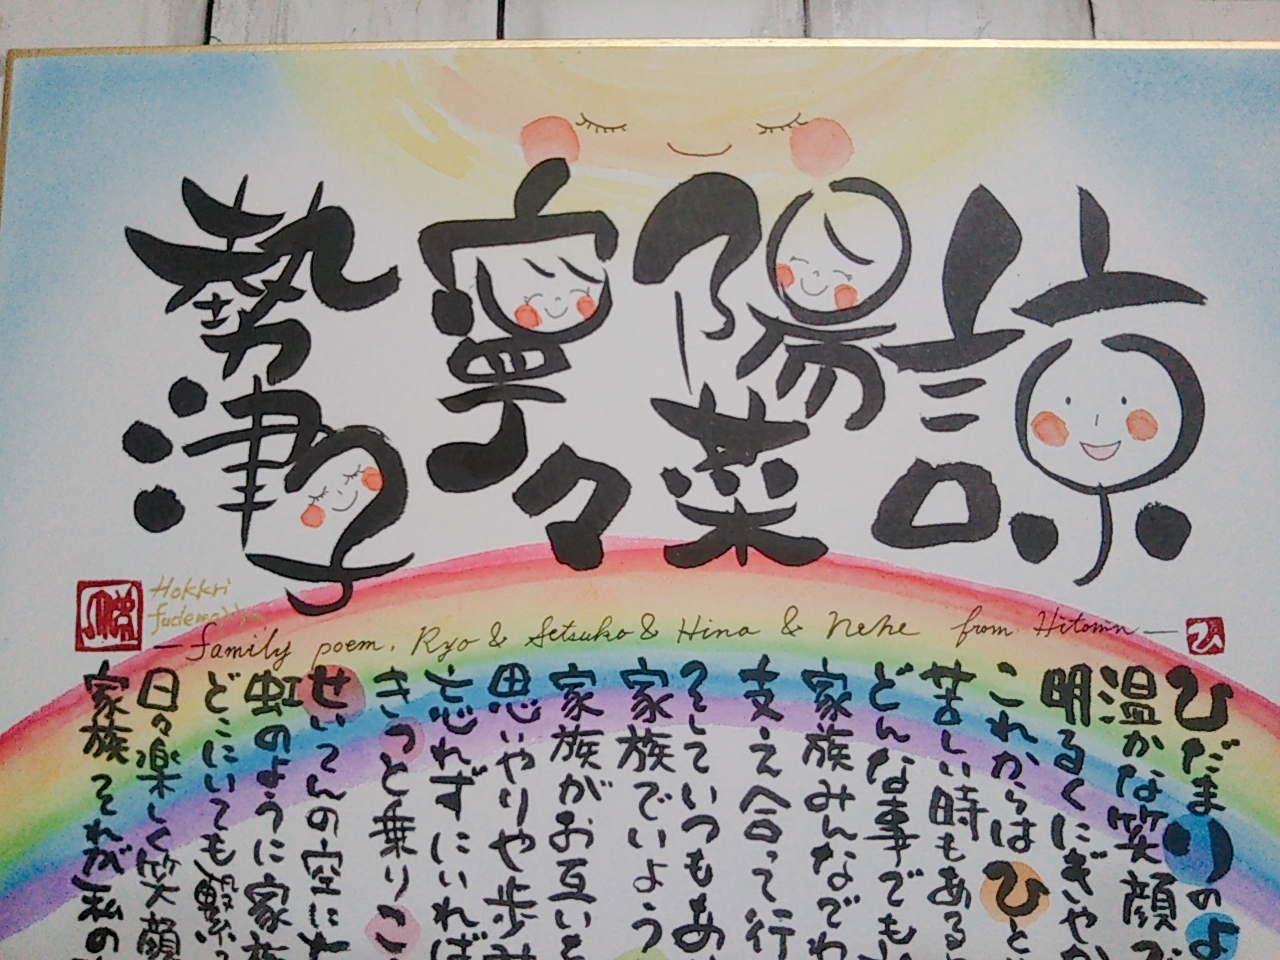 諒
陽菜
寧々
勢津子
family poem. Ryo & Setsuko & Hina & Nene from Hitomi
ひ
Hokkri
ひだまりのよ
温かな笑顔で
明るくにぎやか
これからはひと
苦しい時もある
どんな事でも
家族みんなでわ
支え合って行
そしていつもあ
家族でいよう
家族がお互いを
思いやりや歩み
忘れずにいれば
きっと乗りこ
せいてんの空に
虹のように家族
どこにいても繋
日々楽しく笑顔
家族それが私の